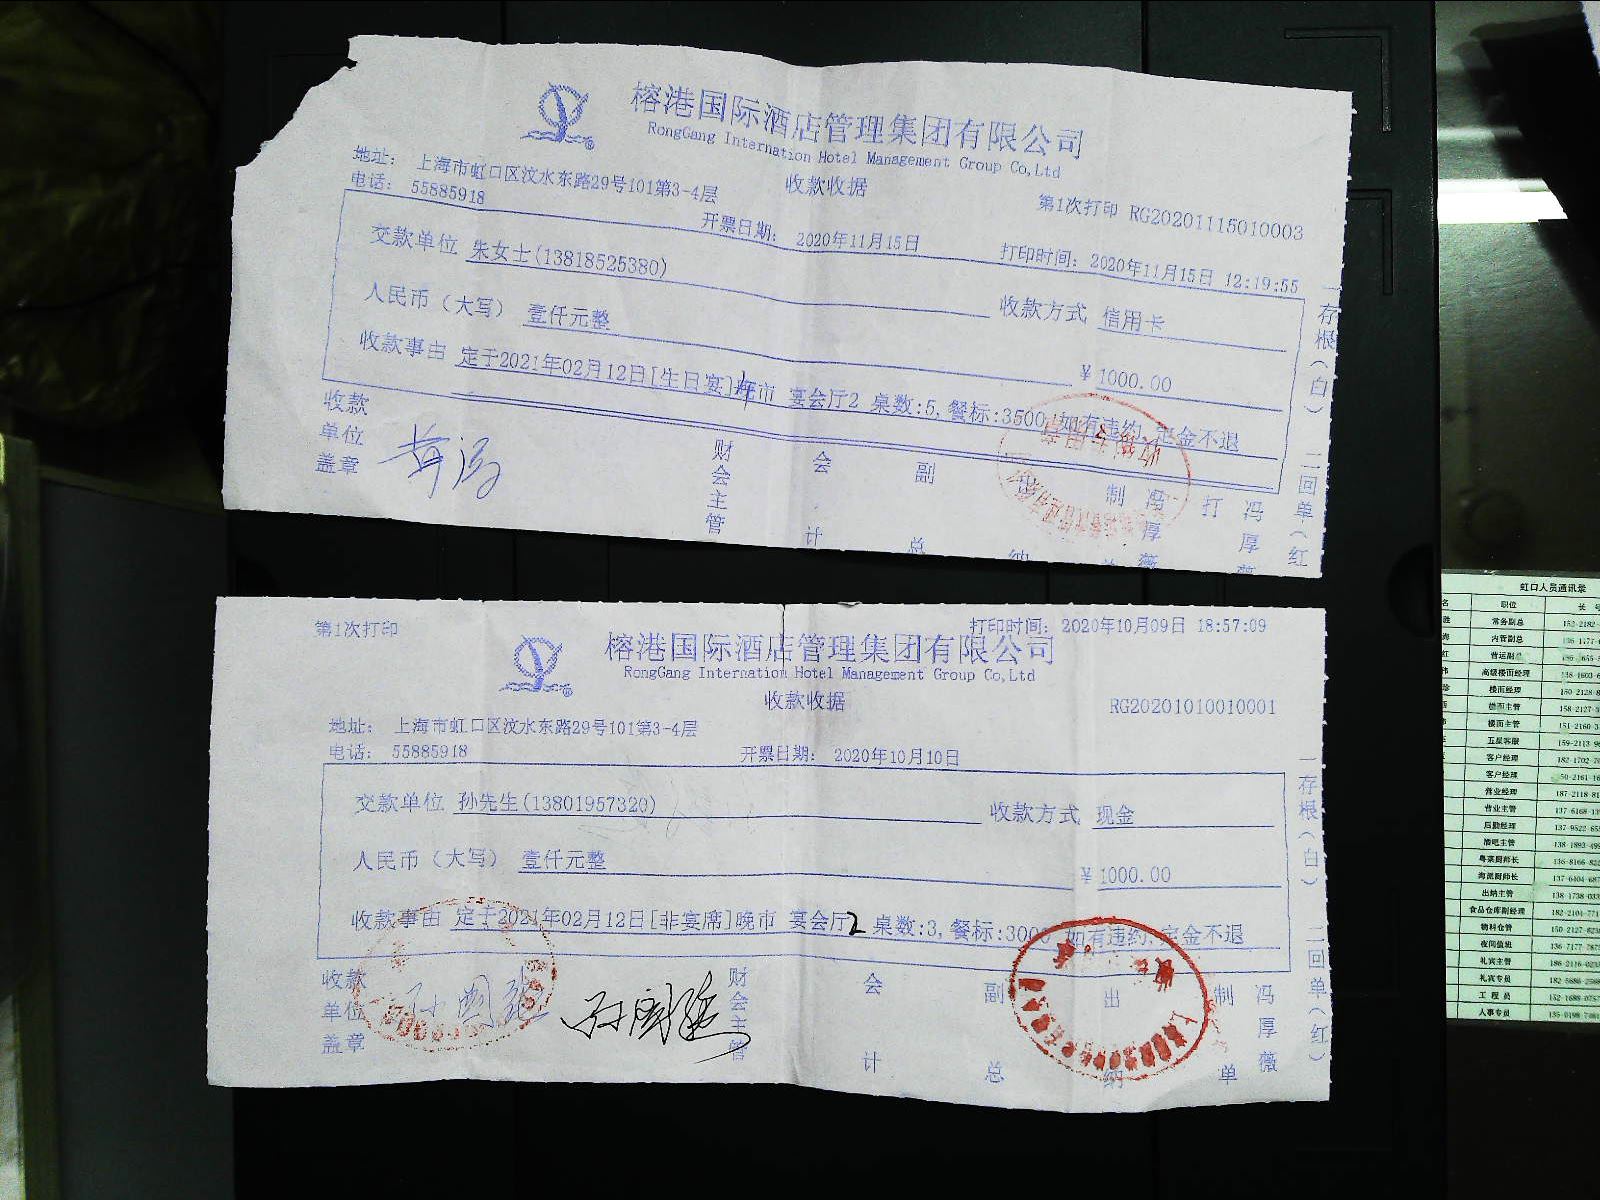 榕港国际酒店管理集团有限公司
RongGang Internation Hotel Management Group Co,Ltd
地址： 上海市虹口区汶水东路29号101第3-4层
收款收据
第1次打印 RG20201115010003
电话： 55885918
开票日期： 2020年11月15日
打印时间： 2020年11月15日 12:19:55
交款单位 朱女士(13818525380)
收款方式 信用卡
人民币（大写） 壹仟元整
￥1000.00
收款事由 定于2021年02月12日[生日宴] 市 宴会厅2 桌数:5,餐标:3500,如有违约,定金不退
收款单位盖章
财会主管
会计
副总
出纳
制 冯厚薇
打 冯厚薇
一存根（白） 二回单（红
第1次打印
打印时间： 2020年10月09日 18:57:09
榕港国际酒店管理集团有限公司
RongGang Internation Hotel Management Group Co,Ltd
收款收据
RG20201010010001
地址： 上海市虹口区汶水东路29号101第3-4层
电话： 55885918
开票日期： 2020年10月10日
交款单位 孙先生(13801957320)
收款方式 现金
人民币（大写） 壹仟元整
￥1000.00
收款事由 定于2021年02月12日[非宴席]晚市 宴会厅2 桌数:3,餐标:3000,如有违约,定金不退
收款单位盖章
孙国
孙国
财会主管
会计
副总
出纳
制单
冯厚薇
一存根（白） 二回单（红）
虹口人员通讯录
名 职位 长 号
常务副总
内管副总
营运副总
高级楼面经理
楼面经理
楼面主管
楼面主管
五星客服
客户经理
客户经理
营业经理
营业主管
后勤经理
酒吧主管
粤菜厨师长
海派厨师长
出纳主管
食品仓库副经理
物料仓管
夜间值班
礼宾主管
礼宾专员
工程员
人事专员